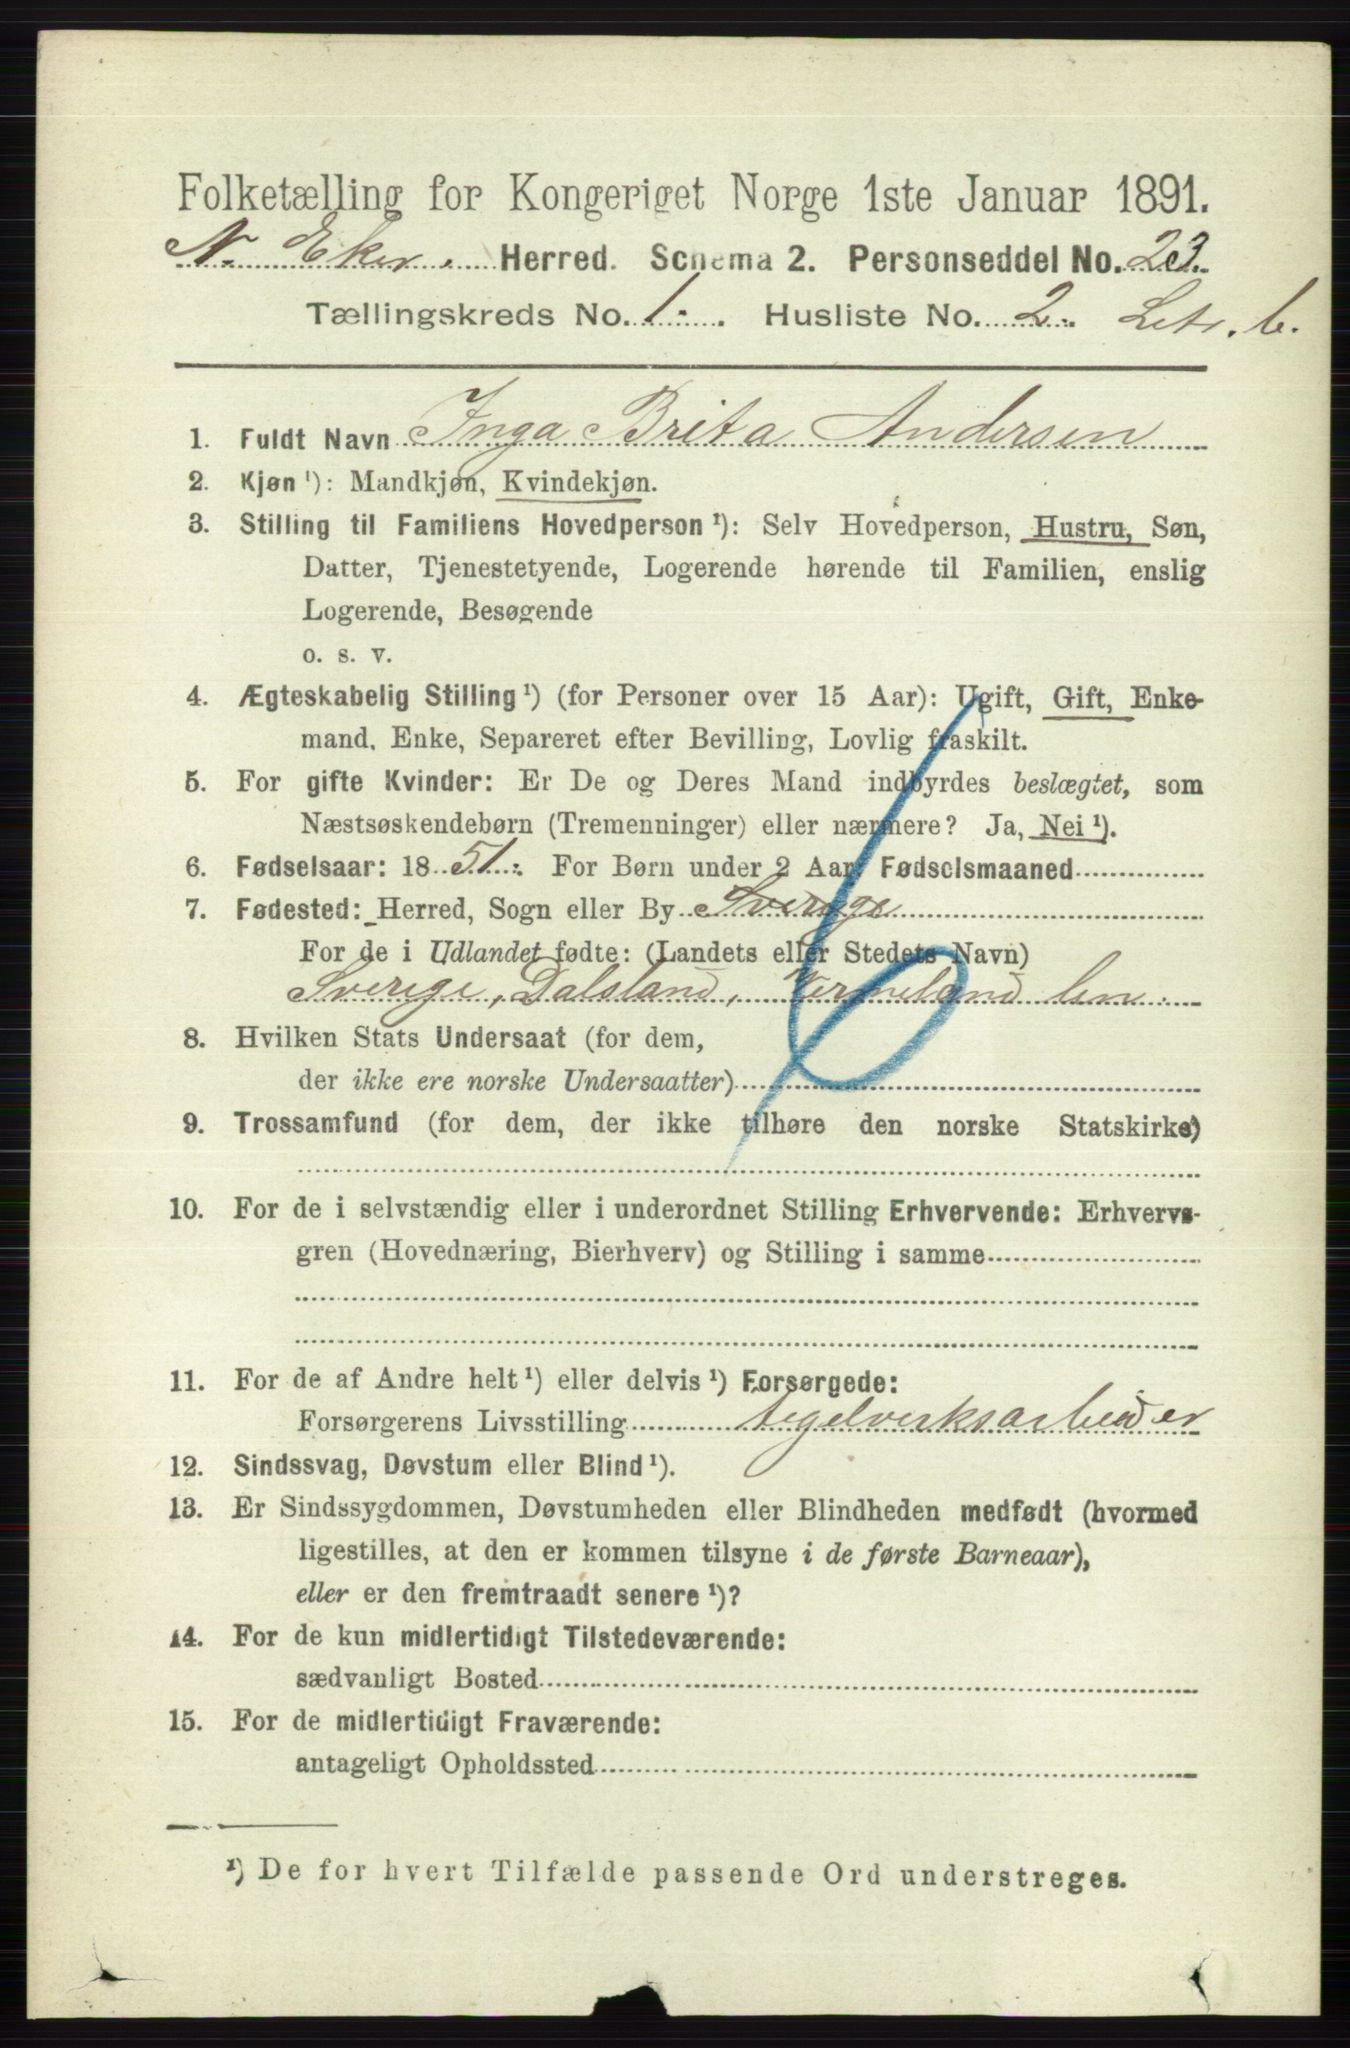 Folketælling for Kongeriget Norge 1ste Januar 1891.
N. Eker. Herred. Schema 2. Personseddel No. 23.
Tællingskreds No. 1. Husliste No. 2. Litr. b.
1. Fuldt Navn Inga Brita Andersen
2. Kjøn ¹): Mandkjøn, Kvindekjøn.
3. Stilling til Familiens Hovedperson ¹): Selv Hovedperson, Hustru, Søn,
Datter, Tjenestetyende, Logerende hørende til Familien, enslig
Logerende, Besøgende
o. s. v.
4. Ægteskabelig Stilling ¹) (for Personer over 15 Aar): Ugift, Gift, Enke-
mand, Enke, Separeret efter Bevilling, Lovlig fraskilt.
5. For gifte Kvinder: Er De og Deres Mand indbyrdes beslægtet, som
Næstsøskendebørn (Tremenninger) eller nærmere? Ja, Nei ¹).
6. Fødselsaar: 1851. For Børn under 2 Aar Fødselsmaaned
7. Fødested: Herred, Sogn eller By Sverige
For de i Udlandet fødte: (Landets eller Stedets Navn)
Sverige, Dalsland, Vermeland len.
8. Hvilken Stats Undersaat (for dem,
der ikke ere norske Undersaatter)
9. Trossamfund (for dem, der ikke tilhøre den norske Statskirke)
10. For de i selvstændig eller i underordnet Stilling Erhvervende: Erhvervs-
gren (Hovednæring, Bierhverv) og Stilling i samme
11. For de af Andre helt ¹) eller delvis ¹) Forsørgede:
Forsørgerens Livsstilling tegelverksarbeider
12. Sindssvag, Døvstum eller Blind ¹).
13. Er Sindssygdommen, Døvstumheden eller Blindheden medfødt (hvormed
ligestilles, at den er kommen tilsyne i de første Barneaar),
eller er den fremtraadt senere ¹)?
14. For de kun midlertidigt Tilstedeværende:
sædvanligt Bosted
15. For de midlertidigt Fraværende:
antageligt Opholdssted
¹) De for hvert Tilfælde passende Ord understreges.